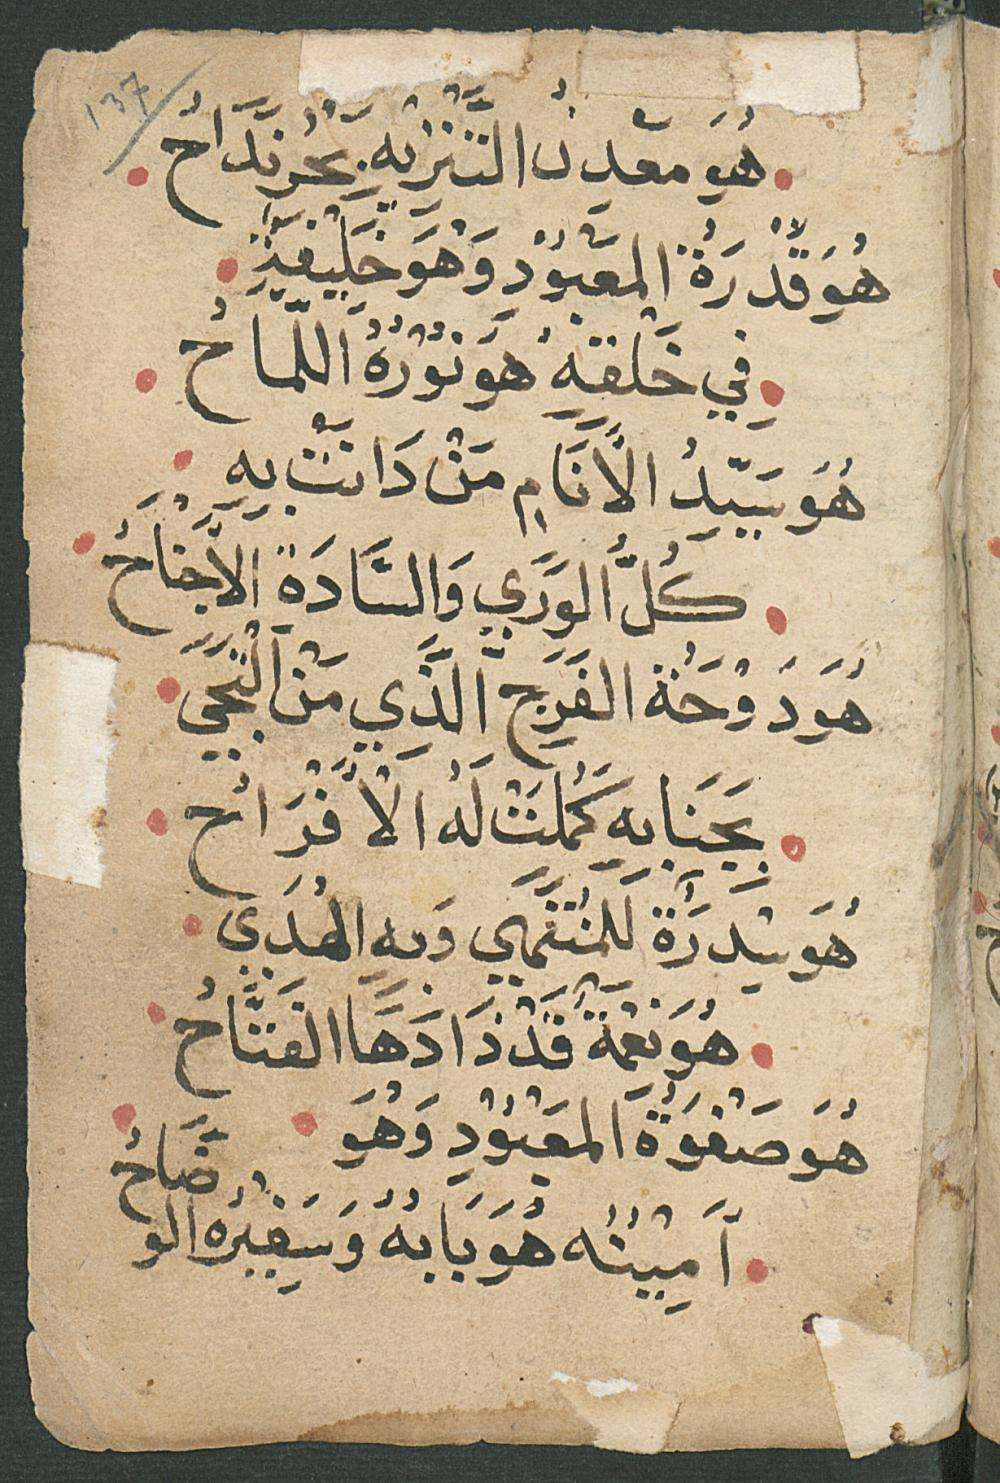 137
هُوَ مَعْدِنُ التَّنْزِيهِ بَحْرُ نَدَاحُ
هُوَ قُدْرَةُ المَعْبُوْدِ وَهْوَ خَلِيْفَةٌ
فِي خَلْقَهِ هُوَ نُوْرُهُ اللَّمَاحُ
هُوَ سَيِّدُ الأَنَامِ مَنْ دَانَتْ بِهِ
كُلُّ الوَرَي وَالسَّادَةُ الأَجْنَاحُ
هُوَ دُوْحَةُ الفَرَجِ الَّذِي مَنْ الْتَجَي
بِجَنَابِهِ كَمُلَتْ لَهُ الأَفْرَاحُ
هُوَ سِدْرَةٌ لِلْمُنْتَهِي وَبِهِ الهُدَي
هُوَ نِعْمَةٌ قَدْ زَادَهَا الفَتَّاحُ
هُوَ صَفْوَةُ المَعْبُوْدِ وَهْوَ
أَمِيْنُهُ هُوَ بَابُهُ وَسَفِيْرُهُ الوضَّاحُ